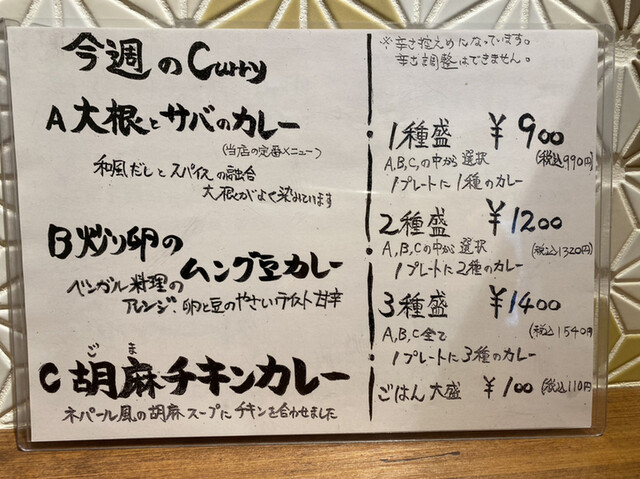 今週のCurry
A 大根とサバのカレー
(当店の定番メニュー)
和風だしとスパイスの融合
大根がよく染みています
B 炒り卵の
ムング豆カレー
ベンガル料理の
アレンジ。卵と豆のやさいライト甘辛
ごま
C 胡麻チキンカレー
ネパール風の胡麻スープにチキンを合わせました
※辛さ控えめになっています。
辛さ調整はできません。
・1種盛 ¥900
A,B,C,の中から選択 (税込990円)
1プレートに1種のカレー
・2種盛 ¥1200
A,B,Cの中から選択 (税込1320円)
1プレートに2種のカレー
・3種盛 ¥1400
A,B,C全て (税込1540円
1プレートに3種のカレー
・ごはん大盛 ¥100 (税込110円